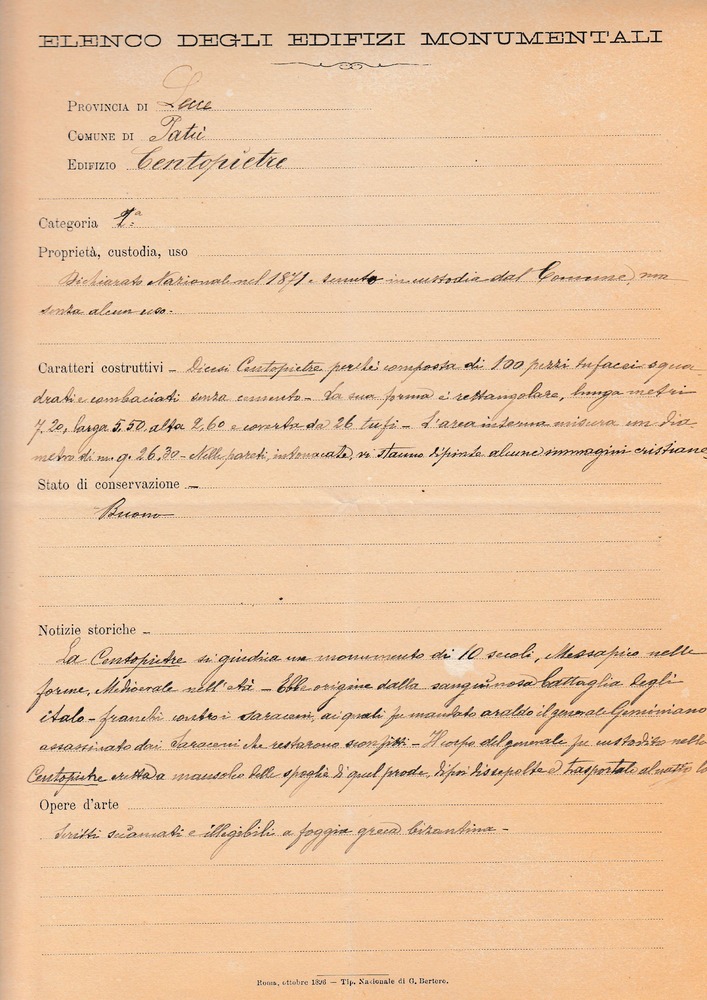 ELENCO DEGLI EDIFIZI MONUMENTALI
PROVINCIA DI Lecce
COMUNE DI Patù
EDIFIZIO Centopietre
Categoria 1.ª
Proprietà, custodia, uso
Dichiarato Nazionale nel 1871 e tenuto in custodia dal Comune, ma
senza alcun uso.
Caratteri costruttivi – Dicesi Centopietre perché composta di 100 pezzi tufacei squa-
drati e combaciati senza cemento – La sua forma è rettangolare, lunga metri
7.20, larga 5.50, alta 2,60 e coverta da 26 tufi – L'area interna misura un dia
metro di m. q. 26,30 – Nelle pareti, intonacate, vi stanno dipinte alcune immagini cristiane
Stato di conservazione –
Buono
Notizie storiche –
La Centopietre si giudica un monumento di 10 secoli, Messapico nelle
forme, Medioevale nell'età – Ebbe origine dalla sanguinosa battaglia degli
italo-franchi contro i saraceni, ai quali fu mandato araldo il generale Geminiano
assassinato dai Saraceni che restarono sconfitti – Il corpo del generale fu custodito nella
Centopietre eretta a mausoleo delle spoglie di quel prode, dipoi disepolte e trasportate
Opere d'arte
Scritti e illegibili a foggia greca bizantina –
Roma, ottobre 1896 — Tip. Nazionale di G. Bertero.